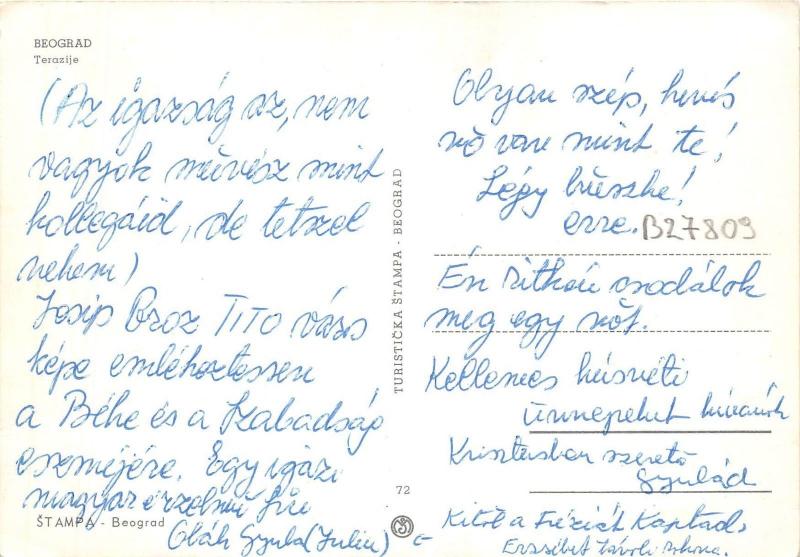 BEOGRAD
Terazije
(Az igazság az, nem
vagyok művész mint
kollegáid, de tetszel
nekem)
Josip Broz TITO város
képe emlékeztessen
a Béke és a Szabadság
eszméjére. Egy igazi
magyar érzelmű fiú
Oláh Gyula (Julius)
ŠTAMPA - Beograd
TURISTIČKA ŠTAMPA - BEOGRAD
72
Olyan szép, kevés
nő van mint te!
Légy büszke!
erre.
B27809
Én ritkán csodálok
meg egy nőt.
Kellemes húsvéti
ünnepeket kívánok
Krisztusban szerető
Gyulád
Kitől a Fréziát Kaptad.
Erzsébet